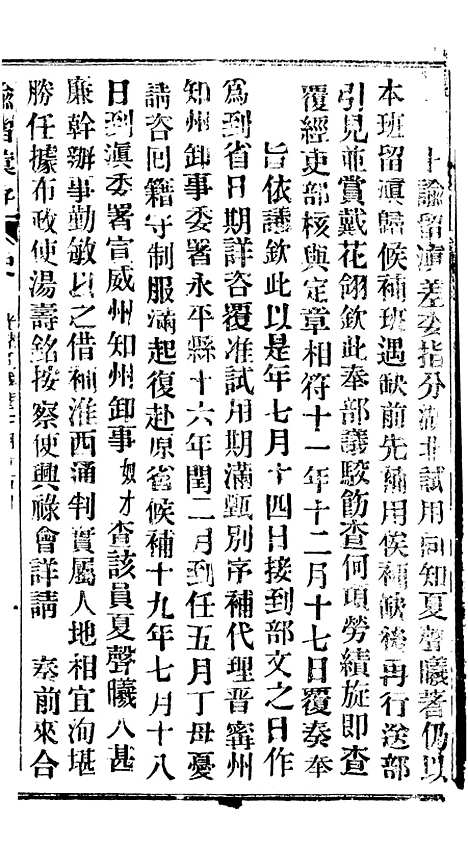 上諭留滇差委指分湖北試用同知夏聲曦著仍以
本班留滇歸候補班遇缺前先補用候補缺後再行送部
引見並賞戴花翎欽此奉部議駁飭查何項勞績旋即查
覆經吏部核與定章相符十一年十二月十七日覆奏奉
旨依議欽此以是年七月十四日接到部文之日作
為到省日期詳咨覆准試用期滿甄別序補代理晋寗州
知州卸事委署永平縣十六年閏二月到任五月丁母憂
請咨回籍守制服滿起復赴原省候補十九年七月十八
日到滇委署宣威州知州卸事奴才查該員夏聲曦人甚
廉幹辦事勤敏以之借補淮西涌判實屬人地相宜洵堪
勝任據布政使湯壽銘按察使興祿會詳請 奏前來合